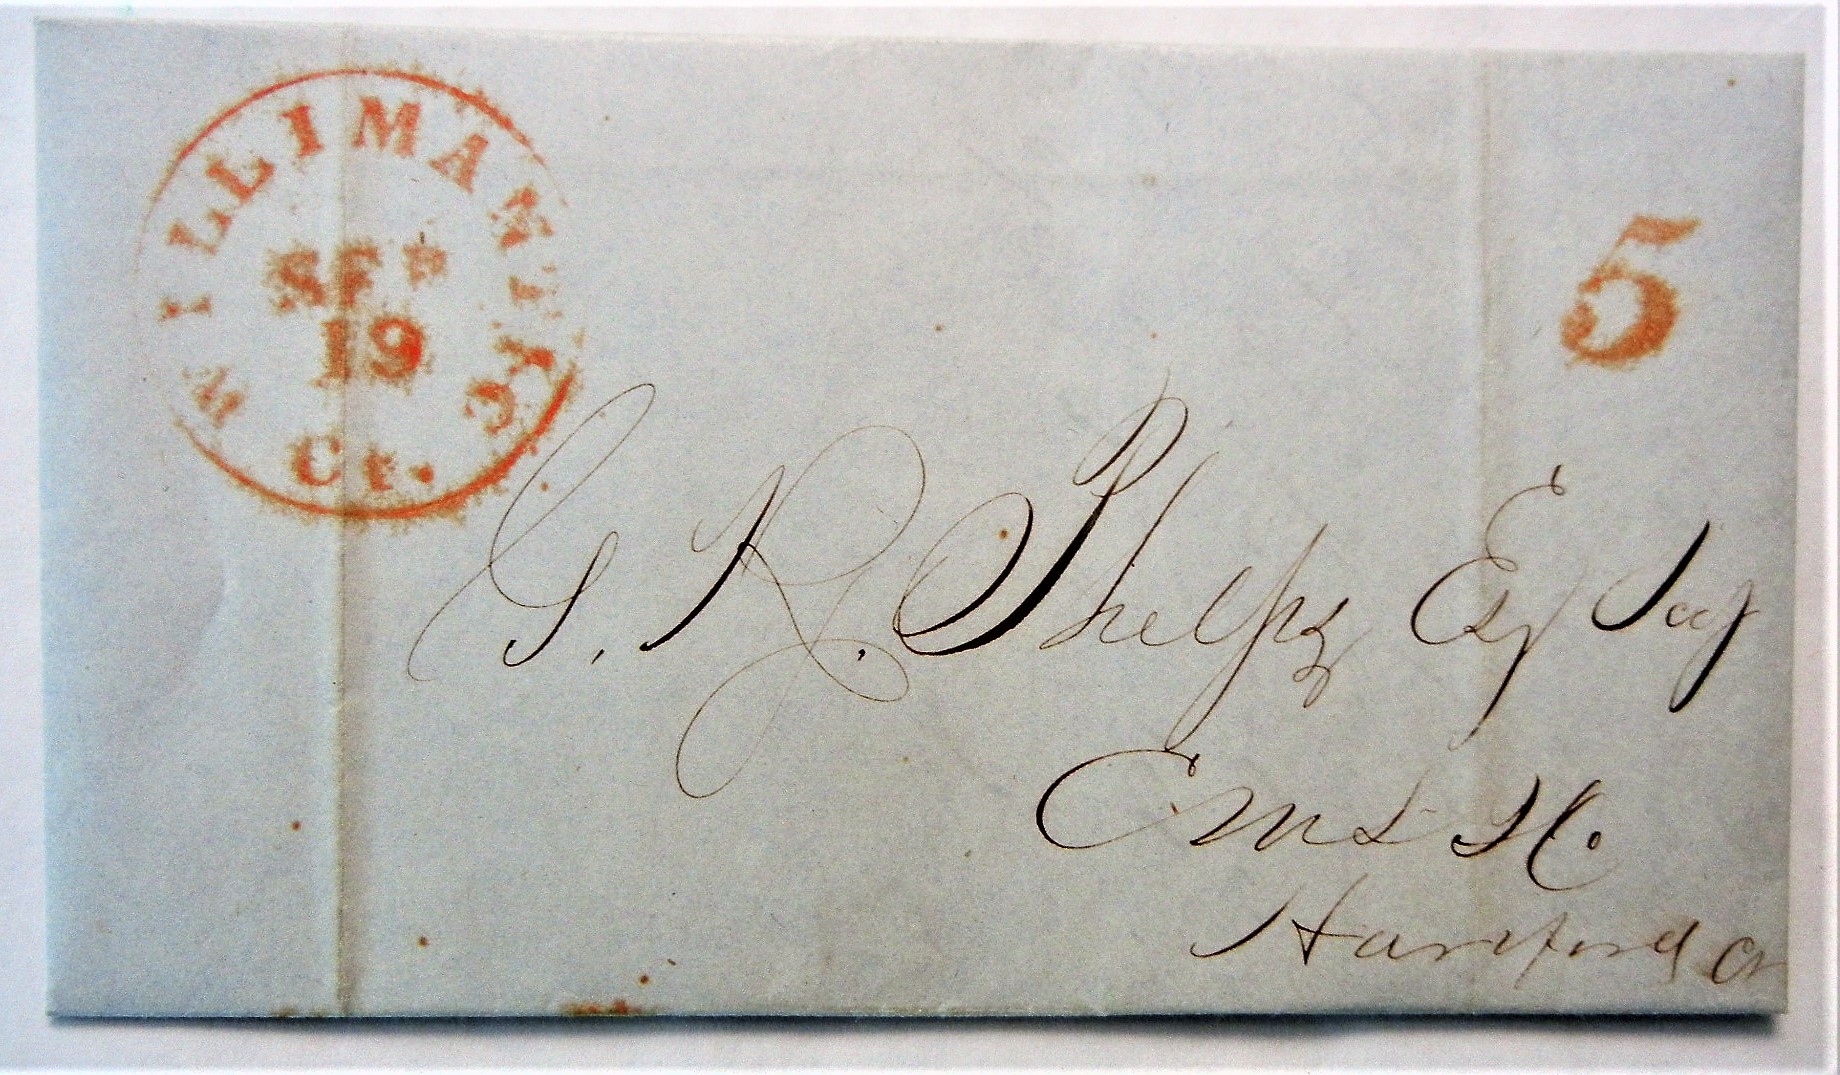 WILLIMANTIC
SEP
19
Ct.
5
G. R. Phelps Esq Secy
C M L I Co.
Hartford Ct